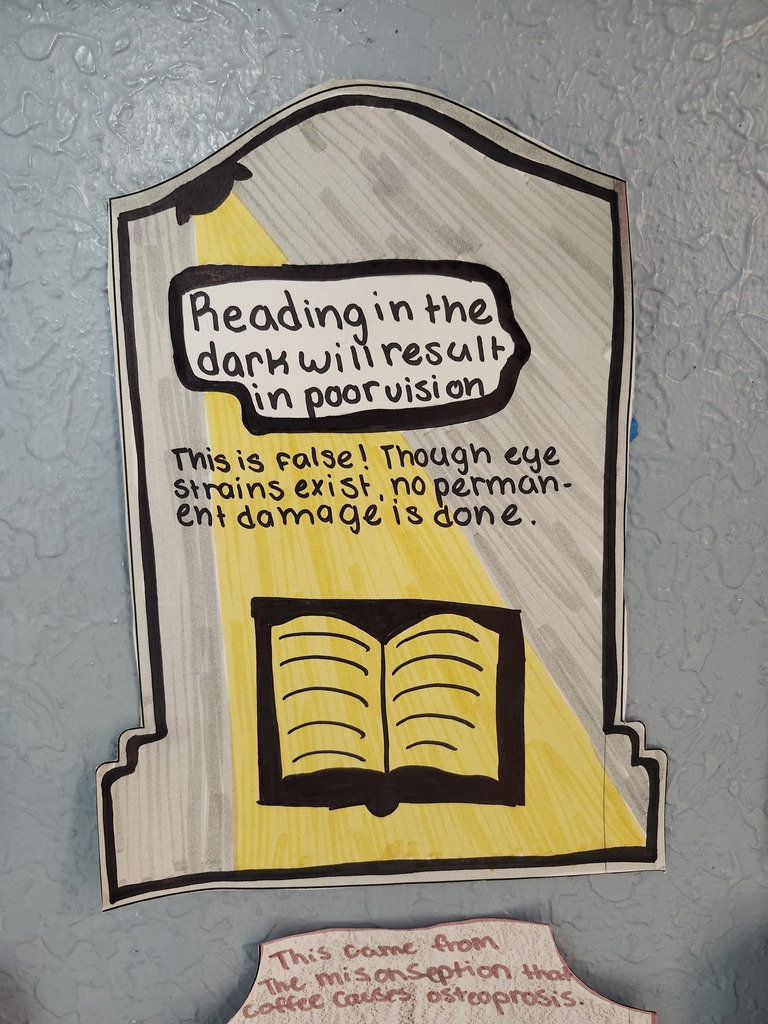 Reading in the
dark will result
in poor vision
This is false! Though eye
strains exist, no perman-
ent damage is done.
This came from
The misonseption that
coffee causes osteoprosis.